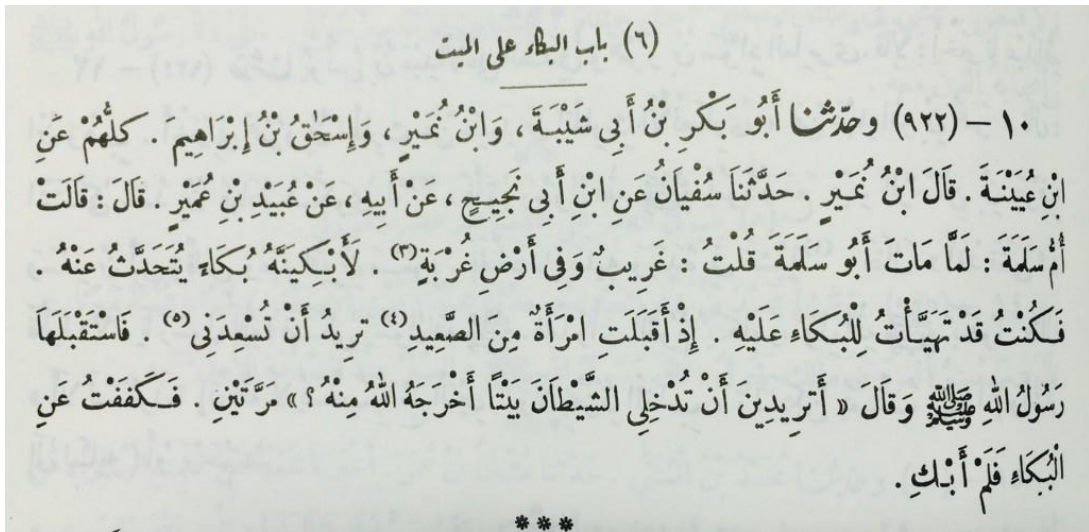 (٦) باب البكاء على الميت
١٠ – (٩٢٢) وحدثنا أَبُو بَكْرِ بْنُ أَبِي شَيْبَةَ ، وَابْنُ نُمَيْرٍ ، وَإِسْحَٰقُ بْنُ إِبْرَاهِيمَ . كلُّهُمْ عَنِ
ابْنِ عُيَيْنَةَ . قَالَ ابْنُ نُمَيْرٍ . حَدَّثَنَا سُفْيَانُ عَنِ ابْنِ أَبِي نَجِيحٍ ، عَنْ أَبِيهِ ، عَنْ عُبَيْدِ بْنِ عُمَيْرٍ . قَالَ : قَالَتْ
أُمُّ سَلَمَةَ : لَمَّا مَاتَ أَبُو سَلَمَةَ قُلْتُ : غَرِيبٌ وَفِي أَرْضِ غُرْبَةٍ(٣) . لَأَبْكِيَنَّهُ بُكَاءً يُتَحَدَّثُ عَنْهُ .
فَكُنْتُ قَدْ تَهَيَّأْتُ لِلْبُكَاءِ عَلَيْهِ . إِذْ أَقْبَلَتِ امْرَأَةٌ مِنَ الصَّعِيدِ(٤) تُرِيدُ أَنْ تُسْعِدَنِي(٥) . فَاسْتَقْبَلَهَا
رَسُولُ اللهِ ﷺ وَقَالَ « أَتُرِيدِينَ أَنْ تُدْخِلِي الشَّيْطَانَ بَيْتًا أَخْرَجَهُ اللهُ مِنْهُ ؟ » مَرَّتَيْنِ . فَكَفَفْتُ عَنِ
الْبُكَاءِ فَلَمْ أَبْكِ .
***